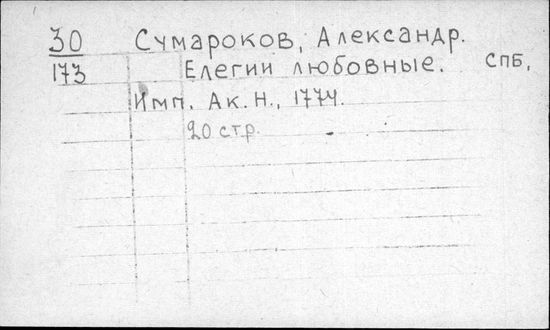 30 Сумароков, Александр.
173 Елегии любовные. СПБ,
Имп. Ак. Н., 1774.
20 стр.